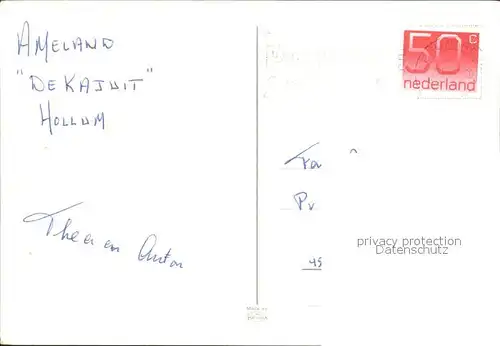 AMELAND
"DE KAJUIT"
HOLLUM
Thea en Anton
50 c
nederland
Fa
Pr
privacy protection
Datenschutz
45